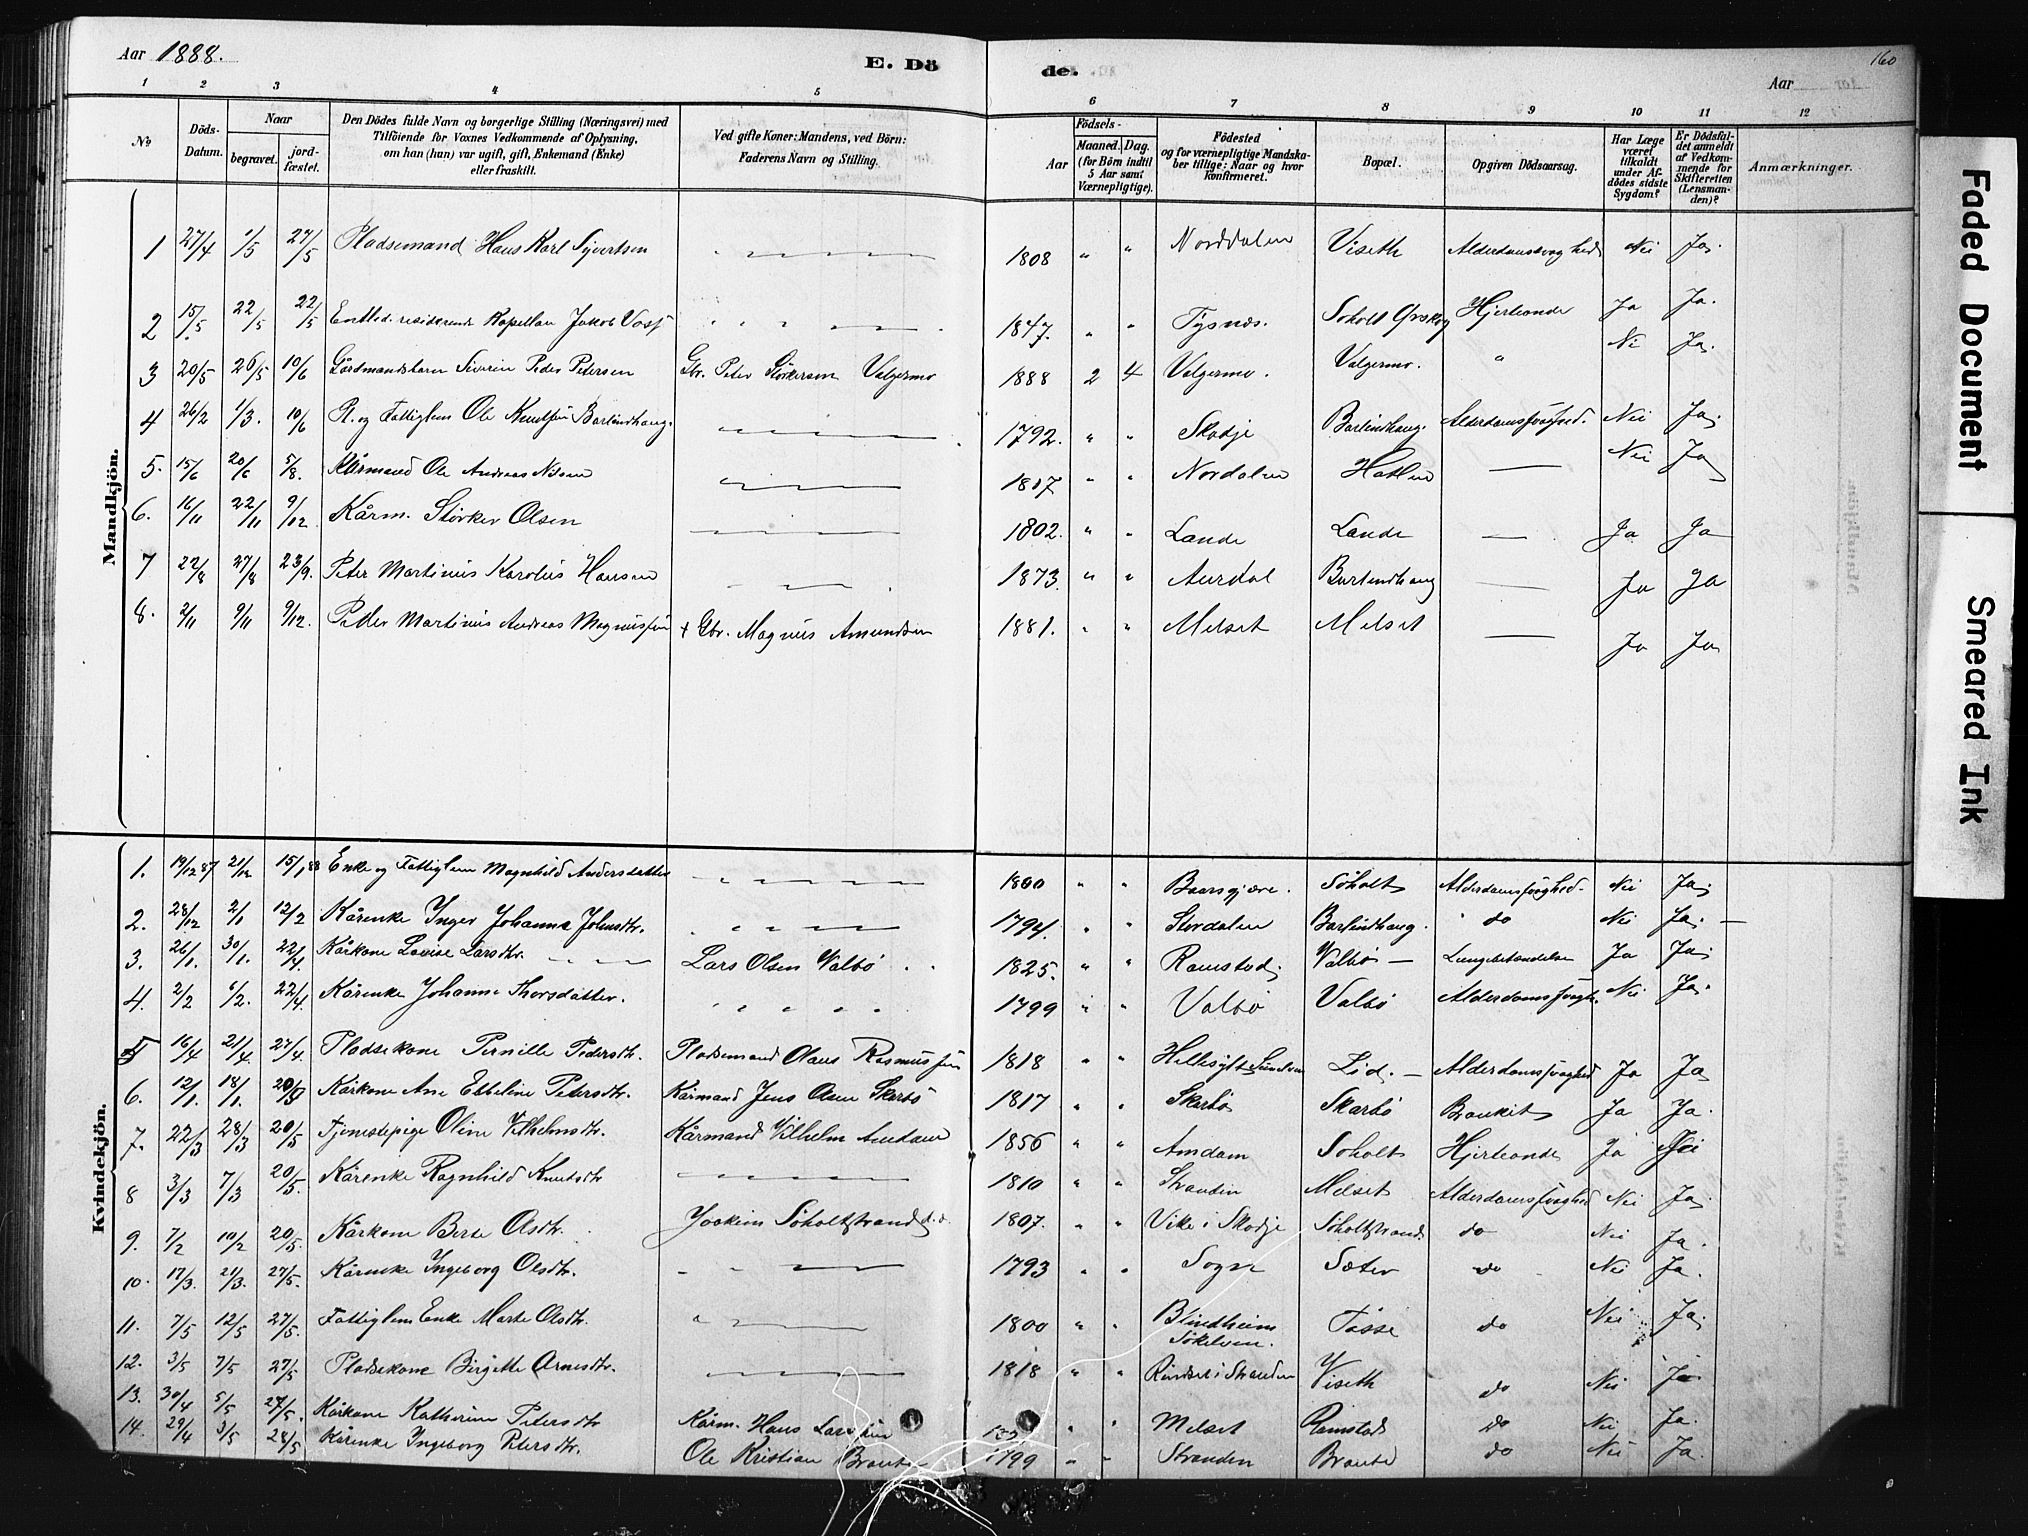 Aar 1888.
E. Dö
de.
Aar
160
1 2 3 4 5 6 7 8 9 10 11 12
No
Döds-Datum.
Naar
begravet.
jord-fæstet.
Den Dödes fulde Navn og borgerlige Stilling (Næringsvei) med
Tilföiende for Voxnes Vedkommende af Oplysning,
om han (hun) var ugift, gift, Enkemand (Enke)
eller fraskilt.
Ved gifte Koner: Mandens, ved Börn:
Faderens Navn og Stilling.
Födsels-
Aar
Maaned. Dag.
(for Börn indtil
5 Aar samt
Værnepligtige).
Födested
og for værnepligtige Mandska-
ber tillige: Naar og hvor
konfirmeret.
Bopæl.
Opgiven Dödsaarsag.
Har Læge
været
tilkaldt
under Af-
dödes sidste
Sygdom?
Er Dödsfal-
det anmeldt
af Vedkom-
mende for
Skifteretten
(Lensman-
den)?
Anmærkninger.
Mandkjön.
1 27/4 1/5 27/5 Pladsemand Hans Karl Sivertsen 1808 " " Norddalen Viseth Nei Ja.
2 15/5. 22/5 22/5 residerende Kapellan Jakob Voss 1847. " " Tysnes. Soholt Ørskog Hjerteonde Ja Ja.
3 20/5 26/5 10/6 Gårdmandsbarn Severin Peder Petersen Gbr. Peter Störkersen Valgermo 1888 2 4 Valgermo. Valgermo. " Nei Ja.
4 26/2 1/3. 10/6 Pl. og Fattiglem Ole Knutsen Barlindhaug. 1792. " " Skodje Barlindhaug. Alderdomssvaghed. Nei Ja.
5. 15/6 20/6 5/8. Kårmand Ole Andreas 1817 " " Nordalen Hatlen Nei Ja
6. 16/11 22/11 9/12 Kårm. Störker Olsen 1802. " " Lande Lande Ja Ja
7 22/8 27/8 23/9. Peter Martinus Karolus Hansen 1873. " " Aurdal Barlindhaug Ja Ja
8. 2/11 9/11 9/12. Petter Martinus Andreas Magnussen + Gbr. Magnus Amundsen 1881. " " Melset Melset Ja Ja
Kvindekjön.
1. 19/12 87 21/12 15/1 88 Enke og Fattiglem Magnhild Andersdatter 1800 " " Söholt Alderdomssvaghed. Nei Ja.
2. 28/12 2/1 12/2 Kårenke Inger Johanna Johnsdtr. 1794. " " Stordalen Barlindhaug. do Nei Ja.
3. 26/1. 30/1. 22/4. Kårkone Lovise Larsdtr. Lars Olsen Valbö 1825. " " Ramstad. Valbö Lungebetændelse Ja Ja.
4. 2/2 6/2. 22/4. Kårenke Johanne Thorsdatter. 1799 " " Valbö Valbö Alderdomssvagh. Nei Ja.
5 16/4 21/4. 27/4. Pladsekone Pernille Pedersdtr. Pladsemand Olaus Rasmussen 1818 " " Hellesylt Sunelven Lid. Alderdomssvaghed Ja Ja
6. 12/1. 18/1. 20/5 Kårkone Ane Ebbeline Petersdtr. Kårmand Jens Olsen Skarbö 1817 " " Skarbö Skarbö Bronkit Ja Ja.
7. 22/3 28/3 20/5 Tjenestepige Oline Vilhelmsdtr. Kårmand Vilhelm Amdam 1856 " " Amdam Soholt Hjerteonde Ja Nei
8 3/3 7/3 20/5. Kårenke Ragnhild Knutsdtr 1810 " " Stranden Melset Alderdomssvaghed Nei Ja.
9. 7/2 10/2 20/5. Kårkone Berte Olsdtr. Joakim Söholtstrand 1807. " " Vike i Skodje Söholtstrand do Nei Ja.
10. 17/3. 21/3. 27/5. Kårenke Ingeborg Olsdtr. 1793 " " Sogn Sæter do Nei Ja.
11. 7/5 12/5 27/5. Fattiglem Enke Marte Olsdtr. 1800 " " Blindheim Sökelven. Tösse do Nei Ja.
12. 3/5 7/5 27/5 Pladsekone Birgitte Arnesdtr. 1818 " " i Stranden Viseth do Nei Ja.
13. 30/4 5/5 27/5. Kårkone Katherine Petersdtr Kårm. Hans Larssen " Melset Ramstad do Nei Ja.
14. 29/4 3/5 28/5 Kårenke Ingeborg Petersdtr. Ole Kristian Braute 1799 " " Stranden Braute do Nei Ja.
Faded Document
Smeared Ink